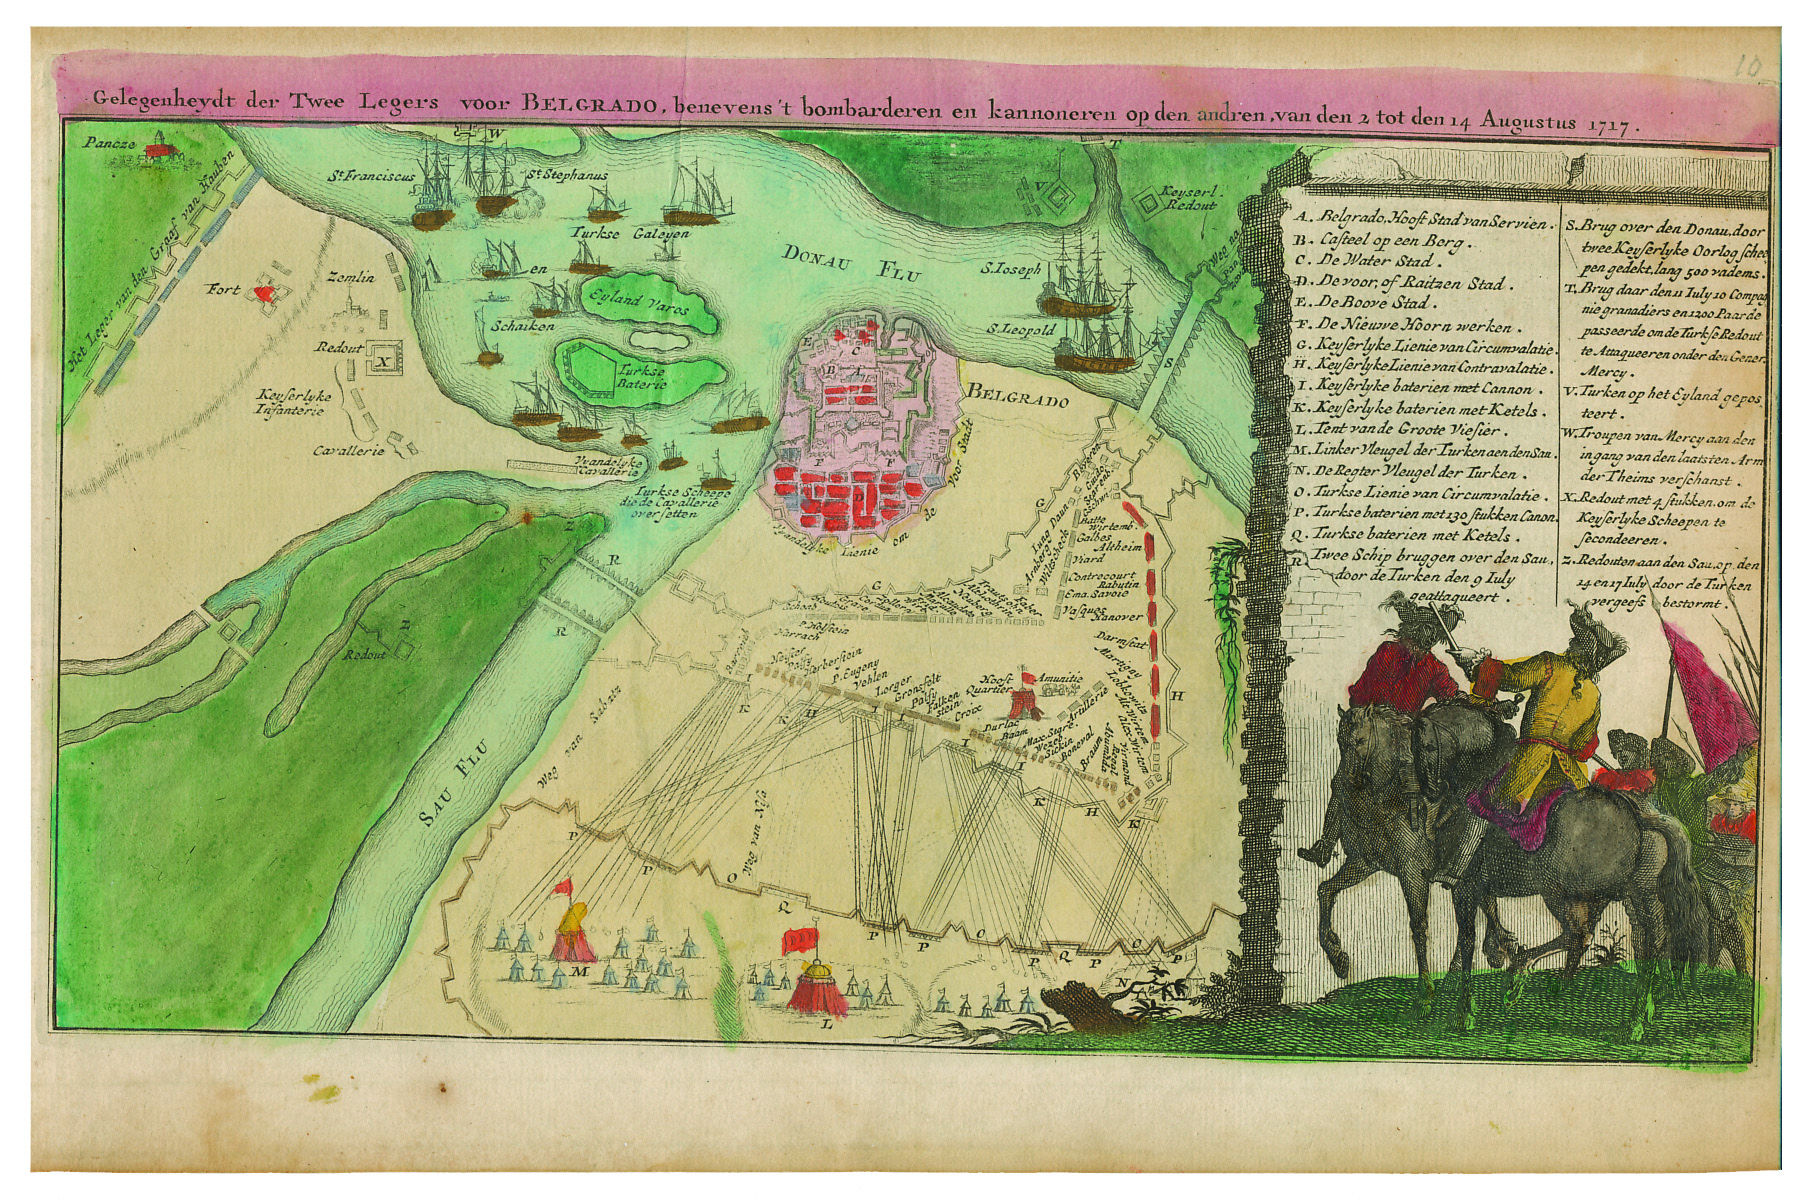 10
Gelegenheydt der Twee Legers voor BELGRADO, benevens 't bombarderen en kannoneren op den andren, van den 2 tot den 14 Augustus 1717.
Pancze
W
T
Het Leger van den Graaf van Hauben
St. Franciscus
St. Stephanus
V
Keyserl.
Redout
Turkse Galeyen
DONAU FLU
S. Ioseph
Weg na
Zemlin
Fort
en
Eyland Varos
Schaiken
S. Leopold
Redout
X
S
Turkse
Baterie
E
C
B
A
BELGRADO
Keyserlyke
Infanterie
Cavallerie
Vyandelyke
Cavallerie
F
F
D
Turkse Scheepe
die de Cavallerie
over setten
Z
Vyandelyke Lienie om de Voor Stadt
R
R
Z
Redout
SAU FLU
G
G
Batte
Wirtemb.
Galbes
Altheim
Viard
Controcourt
Rabutin
Ema. Savoie
Vasques
Hanover
Darmstat
Martigny
P. Holstein
Harrach
Heister
Palfy
Herberstein
P. Eugeny
Vehlen
Lorger
Gronsfelt
Palfy
Falken
stein
Croix
Hooft
Quartier
Amunitie
Artillerie
Durlac
Baam
Max. Stare
Sickin
Boneval
Braun
Weg van Sabatz
I
K
K
H
I
I
I
I
K
H
K
H
P
P
O
Q
P
P
O
P
Q
P
O
P
M
L
N
A. Belgrado, Hooft Stad van Servien.
B. Casteel op een Berg.
C. De Water Stad.
D. De voor, of Raitzen Stad.
E. De Bove Stad.
F. De Nieuwe Hoorn werken.
G. Keyserlyke Lienie van Circumvalatie.
H. Keyserlyke Lienie van Contravalatie.
I. Keyserlyke baterien met Cannon.
K. Keyserlyke baterien met Ketels.
L. Tent van de Groote Viesier.
M. Linker Vleugel der Turken aen den Sau.
N. De Regter Vleugel der Turken.
O. Turkse Lienie van Circumvalatie.
P. Turkse baterien met 130 stukken Canon.
Q. Turkse baterien met Ketels.
R. Twee Schip bruggen over den Sau,
door de Turken den 9 Iuly
geattaqueert.
S. Brug over den Donau, door
twee Keyserlyke Oorlog schee
pen gedekt, lang 500 vadems.
T. Brug daar den 11 Iuly 10 Compag
nie granadiers en 1200 Paarde
passeerde om de Turkse Redout
te Attaqueeren onder den Gener.
Mercy.
V. Turken op het Eyland gepos
teert.
W. Troupen van Mercy aan den
ingang van den laatsten Arm
der Theims verschanst.
X. Redout met 4 stukken, om de
Keyserlyke Scheepen te
secondeeren.
Z. Redouten aan den Sau, op den
14 en 17 Iuly door de Turken
vergeefs bestormt.